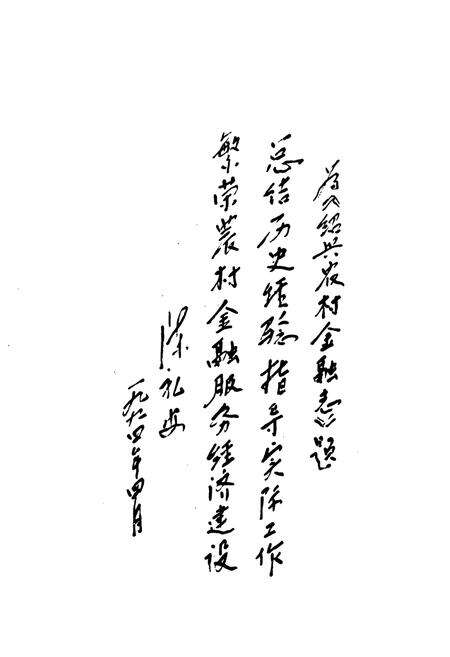 为《绍兴农村金融志》题
总结历史经验指导实际工作
繁荣農村金融服务经济建设
梁礼安
一九九四年四月